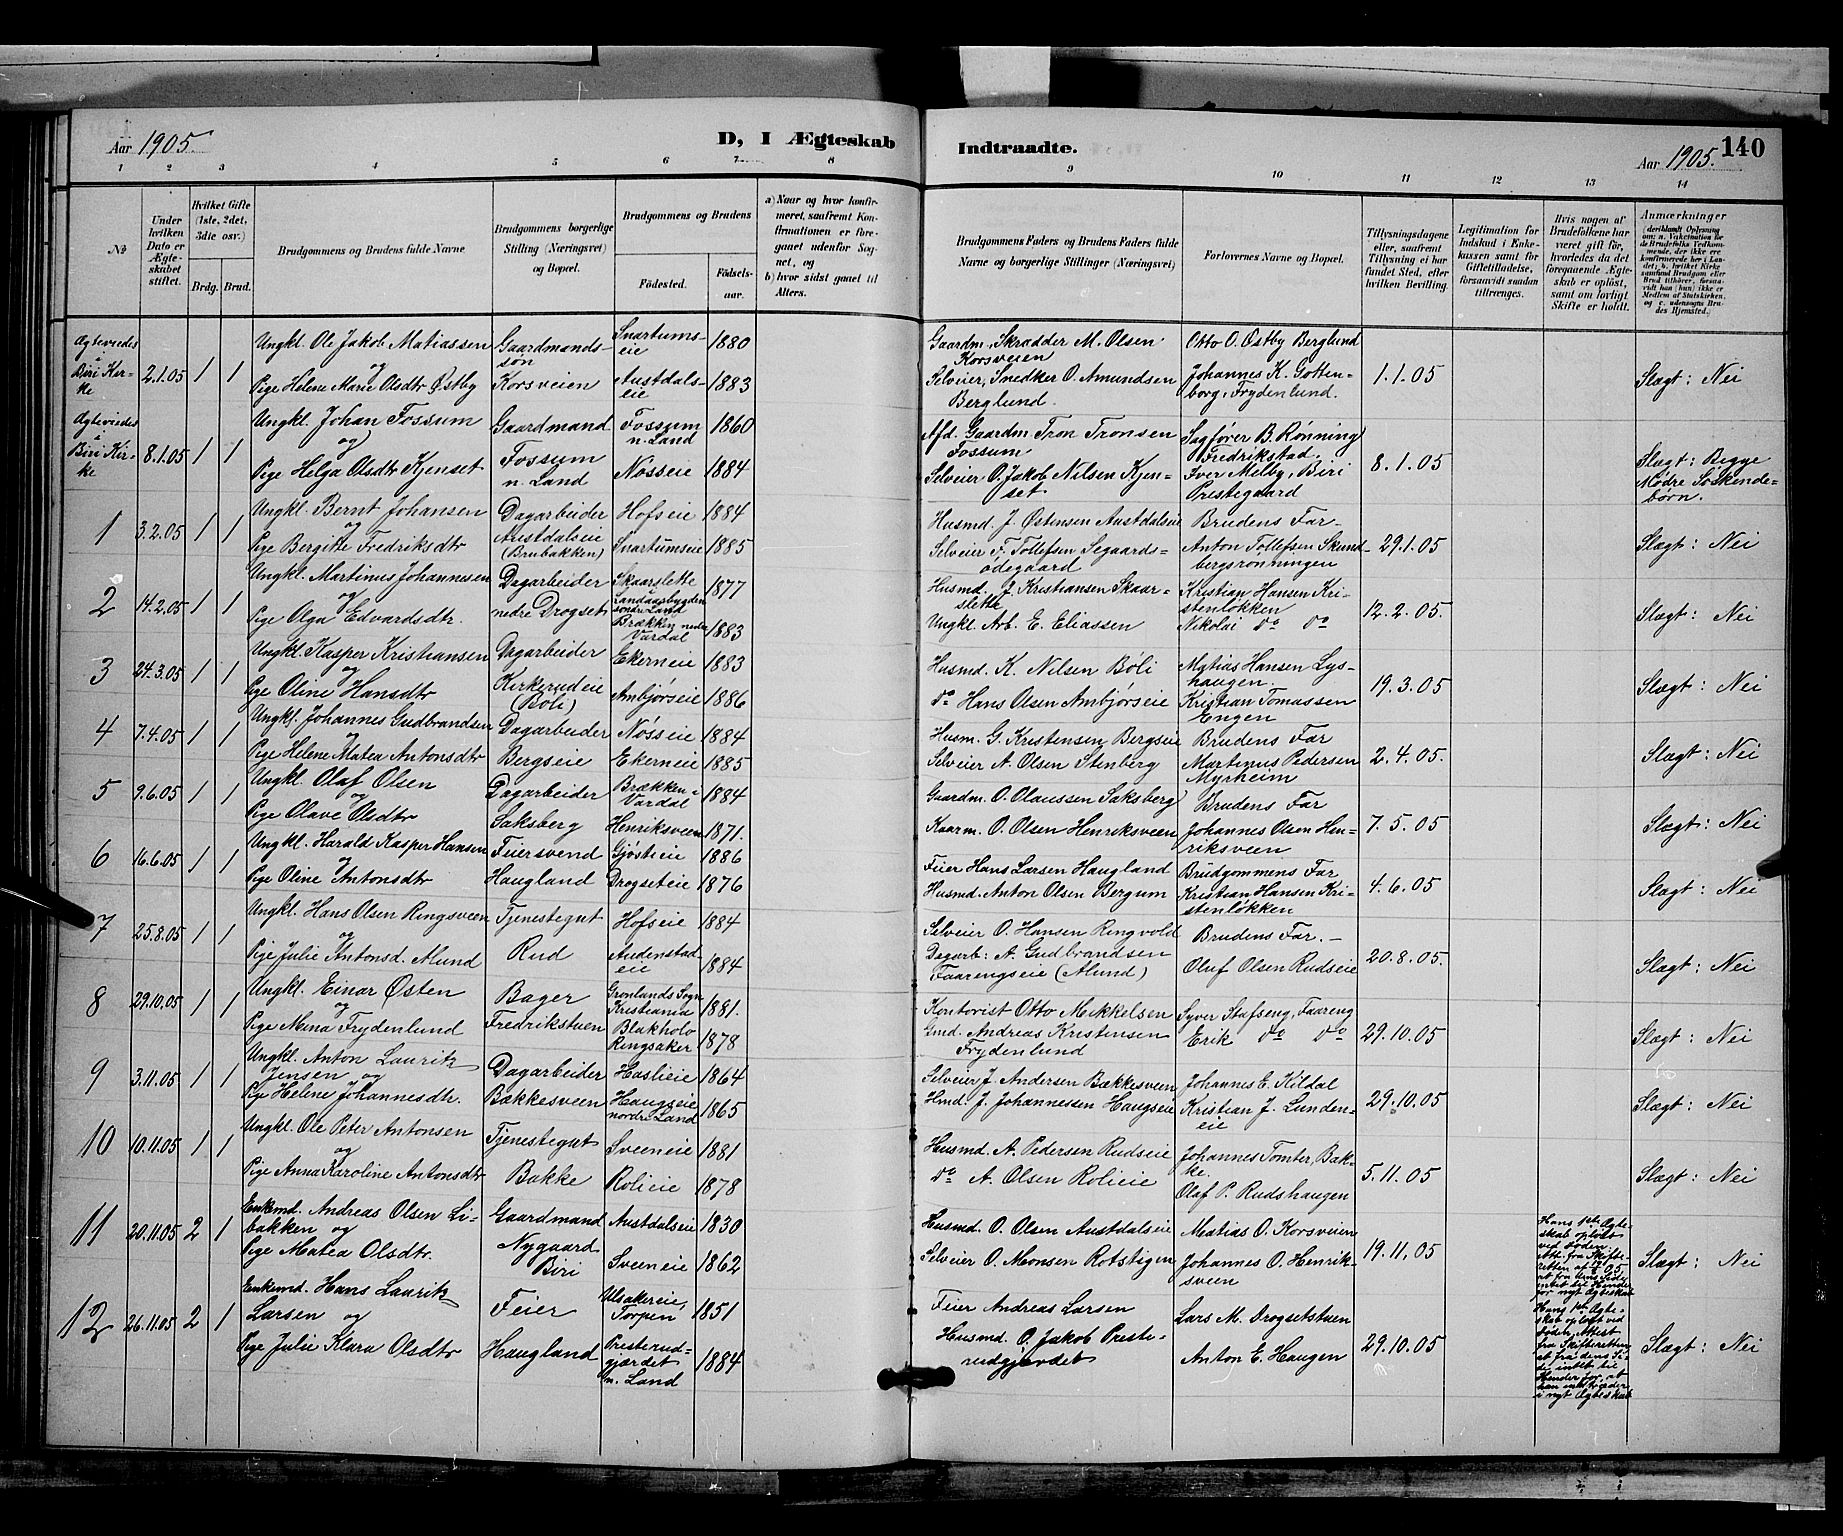 Aar 1905.
D, I Ægteskab
Indtraadte.
Aar 1905.
140
1 2 3 4 5 6 7 8
9 10 11 12 13 14
No
Under hvilken Dato er Ægteskabet stiftet.
Hvilket Gifte (1ste, 2det, 3die osv.)
Brdg. Brud.
Brudgommens og Brudens fulde Navne
Brudgommens borgerlige Stilling (Næringsvei) og Bopæl.
Brudgommens og Brudens
Fødested.
Fødselsaar.
a) Naar og hvor konfirmeret, saafremt Konfirmationen er foregaaet udenfor Sognet, og
b) hvor sidst gaaet til Alters.
Brudgommens Faders og Brudens Faders fulde Navne og borgerlige Stillinger (Næringsvei)
Forlovernes Navne og Bopæl.
Tillysningsdagene eller, saafremt Tillysning ei har fundet Sted, efter hvilken Bevilling.
Legitimation for Indskud i Enkekassen samt for Giftetilladelse, forsaavidt saadan tiltrænges.
Hvis nogen af Brudefolkene har været gift før, hvorledes da det foregaaende Ægteskab er opløst, samt om lovligt Skifte er holdt.
Anmærkninger
Agteviedes i Biri Kirke
2.1.05 1 1
Ungkl. Ole Jakob Matiassen
og
Pige Helene Marie Olsdtr Østby
Gaardmandssøn
Korsveien
Snartumseie 1880
Austdalseie 1883
Gaardm., Skrædder M. Olsen Korsveien
Selveier, Snedker O. Amundsen Berglund.
Otto O. Østby Berglund
Johannes K. Gottenborg, Frydenlund.
1.1.05
Slægt: Nei
Agteviedes i Biri Kirke
8.1.05 1 1
Ungkl. Johan Fossum
og
Pige Helga Olsdtr Kjenset
Gaardmand
Fossum
n. Land
Fossum n. Land 1860
Nøsseie 1884
Afd. Gaardm Tron Tronsen Fossum
Selveier O. Jakob Nilsen Kjenset
Sagfører B. Rønning Fredrikstad.
Iver Melby, Biri Prestegaard
8.1.05
Slægt: Begge Mødre Søskendebørn.
1 3.2.05 1 1
Ungkl. Bernt Johansen
og
Pige Bergitte Fredriksdtr
Dagarbeider
Austdalseie
(Brubakken)
Hofseie 1884
Snartumseie 1885
Husmd. J. Østensen Austdalseie
Selveier F. Tollefsen Segaardsødegaard
Brudens Far
Anton Tollefsen Skundbergsrønningen
29.1.05
Slægt: Nei
2 14.2.05 1 1
Ungkl. Martinus Johannesen
og
Pige Olga Edvardsdtr.
Dagarbeider
nedre Drogset
Skaarslette Landaasbygden søndre Land 1877
Brækken nedre Vardal 1883
Husmd. J. Kristiansen Skaarslette
Ungkl. Arb. E. Eliassen
Kristian Hansen Kristenløkken
Nikolai do do
12.2.05.
Slægt: Nei
3 24.3.05 1 1
Ungkl. Kasper Kristiansen
og
Pige Oline Hansdtr
Dagarbeider
Kirkerudeie
(Bøli)
Ekerneie 1883
Ambjørseie 1886
Husmd. K. Nilsen Bøli
do Hans Olsen Ambjørseie
Matias Hansen Lyshaugen.
Kristian Tomassen Engen
19.3.05
Slægt: Nei
4 7.4.05 1 1
Ungkl. Johannes Gudbrandsen
og
Pige Helene Matea Antonsdtr
Dagarbeider
Bergseie
Nøsseie 1884
Ekerneie 1885
Husm. G. Kristensen Bergseie
Selveier A. Olsen Stenberg
Brudens Far
Martinus Pedersen Myrheim
2.4.05.
Slægt: Nei
5 9.6.05 1 1
Ungkl. Olaf Olsen
og
Pige Olave Olsdtr
Dagarbeider
Saksberg
Brækken Vardal 1884
Henriksveen 1871.
Gaardm. O. Olaussen Saksberg
Kaarm. O. Olsen Henriksveen
Brudens Far
Johannes Olsen Henriksveen
7.5.05
Slægt: Nei
6 16.6.05 1 1
Ungkl. Harald Kasper Hansen
og
Pige Oline Antonsdtr
Feiersvend
Haugland
Gjøstieie 1886
Drogseteie 1876
Feier Hans Larsen Haugland
Husmd. Anton Olsen Bergum
Brudgommens Far
Kristian Hansen Kristenløkken
4.6.05
Slægt: Nei
7 25.8.05 1 1
Ungkl. Hans Olsen Ringsveen
og
Pige Julie Antonsd. Alund
Tjenestegut
Rud
Hofseie 1884
Audenstadeie 1884
Selveier O. Hansen Ringvold
Dagarb: A. Gudbrandsen Faarengseie (Alund)
Brudens Far.
Oluf Olsen Rudseie
20.8.05.
Slægt: Nei
8 29.10.05 1 1
Ungkl. Einar Østen
og
Pige Mina Frydenlund
Bager
Fredrikstuen
Grønlands Sogn Kristiania 1881.
Blakholo Ringsaker 1878
Kontorist Otto Mikkelsen
Gmd. Andreas Kristensen Frydenlund
Syver Stafseng, Faareng
Erik do do
29.10.05
Slægt: Nei
9 3.11.05 1 1
Ungkl. Anton Lauritz Jensen og
Pige Helene Johannesdtr.
Dagarbeider
Bækkesveen
Haslieie 1864
Haugseie nordre Land 1865
Selveier J. Andersen Bækkesveen
Hmd. J. Johannessen Haugseie
Johannes E. Kildal
Kristian J. Lundeneie
29.10.05
Slægt: Nei
10 10.11.05 1 1
Ungkl. Ole Peter Antonsen
og
Pige Anna Karoline Antonsdtr
Tjenestegut
Bakke
Sveeneie 1881
Rolieie 1878
Husmd. A. Pedersen Rudseie
do A. Olsen Rolieie
Johannes Tomter, Bakke.
Olaf P. Rudshaugen
5.11.05
Slægt: Nei
11 20.11.05 2 1
Enkemd. Andreas Olsen Libakken og
Pige Matea Olsdtr.
Gaardmand
Nygaard
Biri
Austdalseie 1830
Sveeneie 1862
Husmd. O. Olsen Austdalseie
Selveier O. Monsen Rotstigen
Matias O. Korsveien
Johannes O. Henriksveen
19.11.05
Hans 1ste Ægteskab opløst ved Døden.
Slægt: Nei
12 26.11.05 2 1
Enkemd. Hans Lauritz Larsen og
Pige Julie Klara Olsdtr
Feier
Haugland
Ulsakereie, Torpen 1851
Presterudgjærdet n. Land 1884
Feier Andreas Larsen
Husmd. O. Jakob Presterudgjærdet
Lars M. Drogsetstuen
Anton E. Haugen
29.10.05
Hans 1ste Ægteskab opløst ved Døden, Attest fra Skifteretten at fra dens Side intet til Hinder for, at han indtræder i nyt Ægteskab
Slægt: Nei